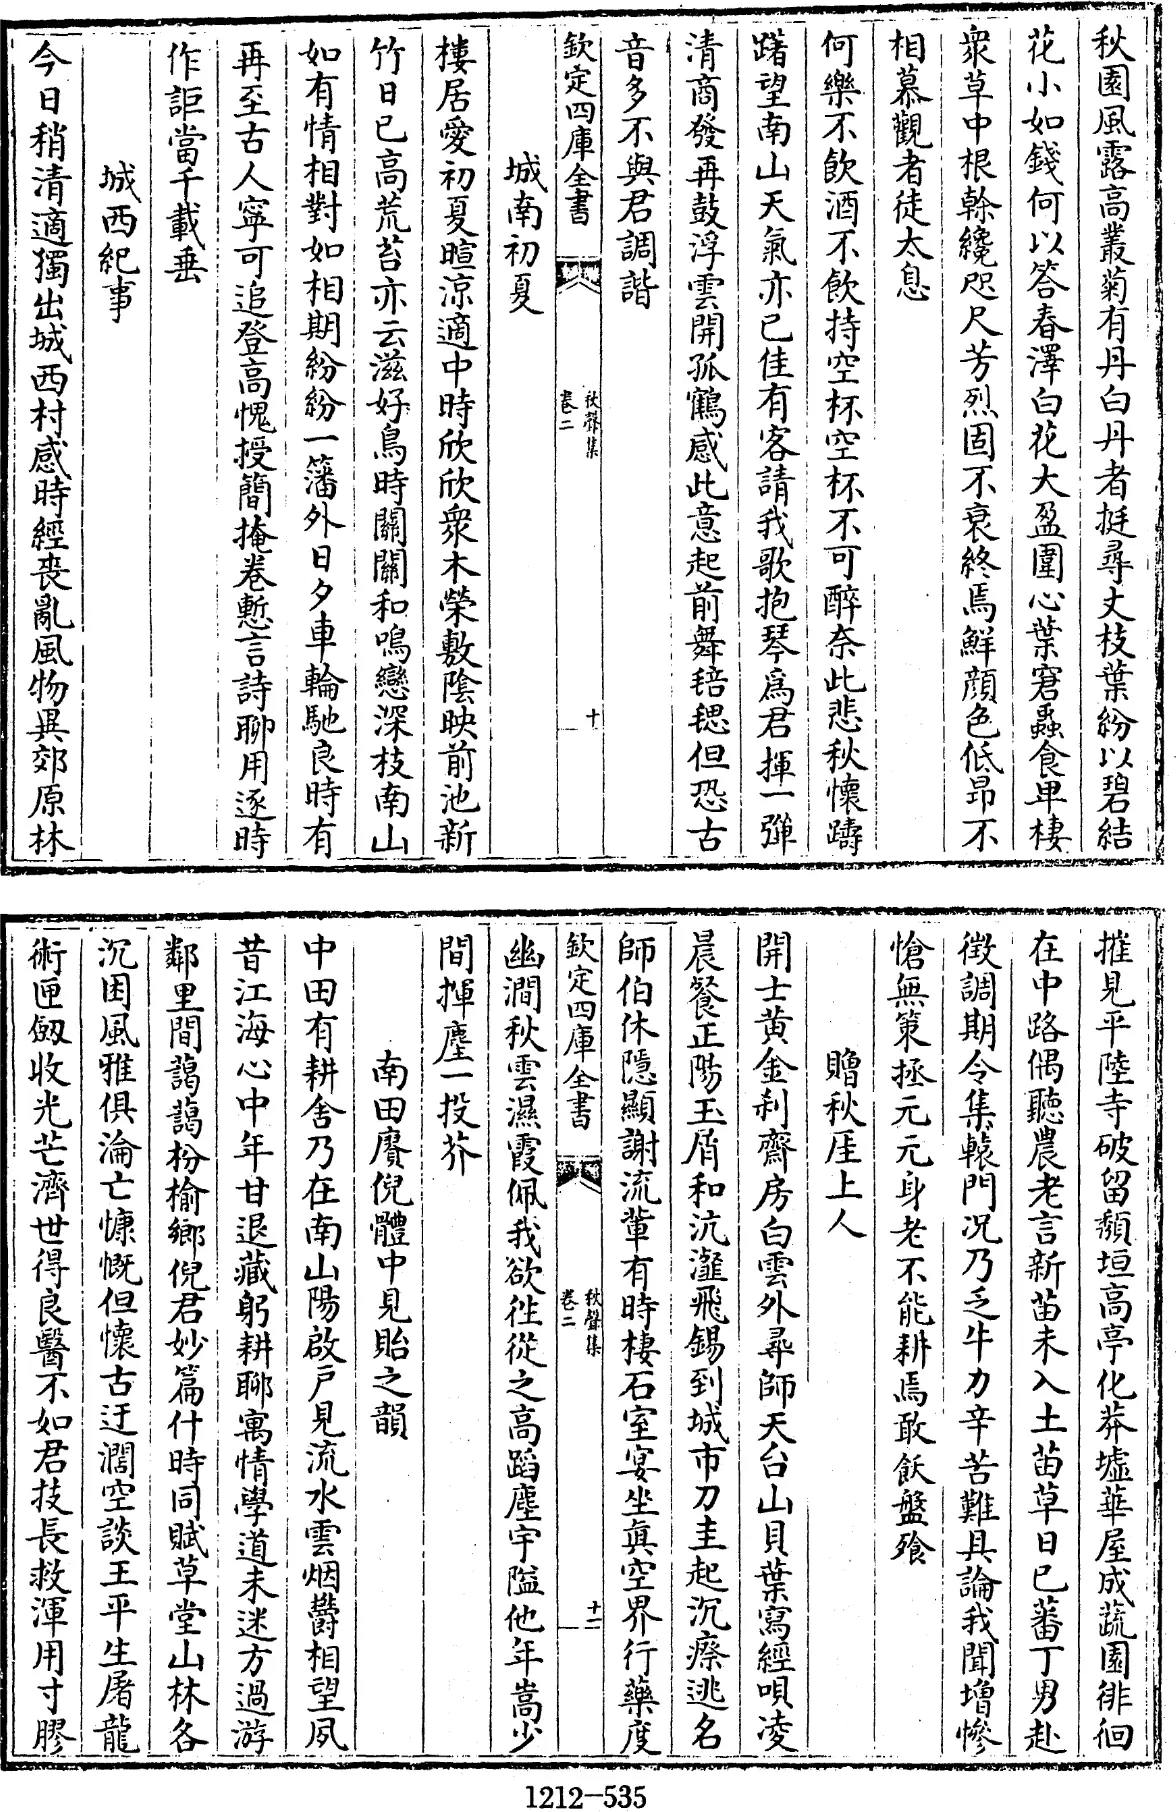 秋園風露高叢菊有丹白丹者挺尋丈枝葉紛以碧結
花小如錢何以答春澤白花大盈圍心葉窘蟲食卑棲
衆草中根幹纔咫尺芳烈固不衰終焉鮮顔色低昂不
相慕觀者徒太息
何樂不飲酒不飲持空杯空杯不可醉奈此悲秋懷躊
躇望南山天氣亦已佳有客請我歌抱琴爲君揮一彈
清商發再鼓浮雲開孤鶴感此意起前舞毰毸但恐古
音多不與君調諧
欽定四庫全書
秋聲集
卷二
十
城南初夏
樓居愛初夏暄涼適中時欣欣衆木榮敷陰映前池新
竹日已高荒苔亦云滋好鳥時關關和鳴戀深枝南山
如有情相對如相期紛紛一籓外日夕車輪馳良時有
再至古人寧可追登高愧授簡掩卷慙言詩聊用逐時
作詎當千載垂
城西紀事
今日稍清適獨出城西村感時經喪亂風物異郊原林
摧見平陸寺破留頽垣高亭化莽墟華屋成蔬園徘徊
在中路偶聽農老言新苗未入土苗草日已蕃丁男赴
徴調期令集轅門況乃乏牛力辛苦難具論我聞增慘
愴無策拯元元身老不能耕焉敢飫盤飱
贈秋厓上人
開士黄金刹齋房白雲外尋師天台山貝葉寫經唄凌
晨餐正陽玉屑和沆瀣飛錫到城市刀圭起沉瘵逃名
師伯休隱顯謝流輩有時棲石室宴坐真空界行藥度
欽定四庫全書
秋聲集
卷二
十一
幽澗秋雲濕霞佩我欲徃從之高蹈塵宇隘他年嵩少
間揮麈一投芥
南田賡倪體中見貽之韻
中田有耕舍乃在南山陽啟戶見流水雲烟欝相望夙
昔江海心中年甘退藏躬耕聊寓情學道未迷方過游
鄰里間藹藹枌榆鄉倪君妙篇什時同賦草堂山林各
沉困風雅俱淪亡慷慨但懷古迂濶空談王平生屠龍
術匣劒收光芒濟世得良醫不如君技長救渾用寸膠
1212—535